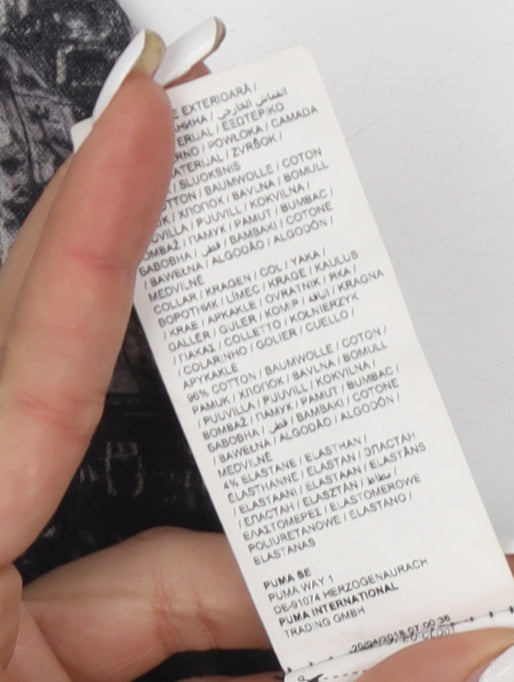 E EXTERIOARĂ /
/ القماش الخارجي
ERIJAL / ΕΞΩΤΕΡΙΚΟ
RNO / POWŁOKA / CAMADA
ATERIJAL / ZVRŠOK /
/ SLUOKSNIS
TTON / BAUMWOLLE / COTON
UK / ХЛОПОК / BAVLNA / BOMULL
UVILLA / PUUVILL / KOKVILNA /
OMBAŽ / ПАМУК / PAMUT / BUMBAC /
БАВОВНА / قطن / ΒΑΜΒΑΚΙ / COTONE
/ BAWEŁNA / ALGODÃO / ALGODÓN /
MEDVILNĖ
COLLAR / KRAGEN / COL / YAKA /
ВОРОТНИК / LÍMEC / KRAGE / KAULUS
/ KRAE / APKAKLE / OVRATNIK / ЯКА /
GALLÉR / GULER / КОМІР / الياقة / KRAGNA
/ ΓΙΑΚΑΣ / COLLETTO / KOŁNIERZYK
/ COLARINHO / GOLIER / CUELLO /
APYKAKLĖ
96% COTTON / BAUMWOLLE / COTON /
PAMUK / ХЛОПОК / BAVLNA / BOMULL
/ PUUVILLA / PUUVILL / KOKVILNA /
BOMBAŽ / ПАМУК / PAMUT / BUMBAC /
БАВОВНА / قطن / ΒΑΜΒΑΚΙ / COTONE
/ BAWEŁNA / ALGODÃO / ALGODÓN /
MEDVILNĖ
4% ELASTANE / ELASTHAN /
ÉLASTHANNE / ELASTAN / ЭЛАСТАН
/ ELASTAANI / ELASTAAN / ELASTĀNS
/ ЕЛАСТАН / ELASZTÁN / مطاط /
ΕΛΑΣΤΟΜΕΡΕΣ / ELASTOMEROWE
POLIURETANOWE / ELASTANO /
ELASTANAS
PUMA SE
PUMA WAY 1
DE-91074 HERZOGENAURACH
PUMA INTERNATIONAL
TRADING GMBH